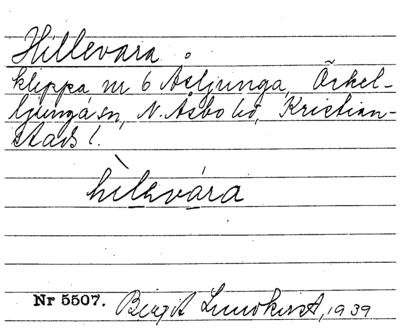 Hillevara
klippa nr 6 Åsljunga, Örkel-
ljunga sn, N. Åsbo hd, Kristian-
stads l.
hìlevára
Nr 5507. Birgit Lundkvist, 1939